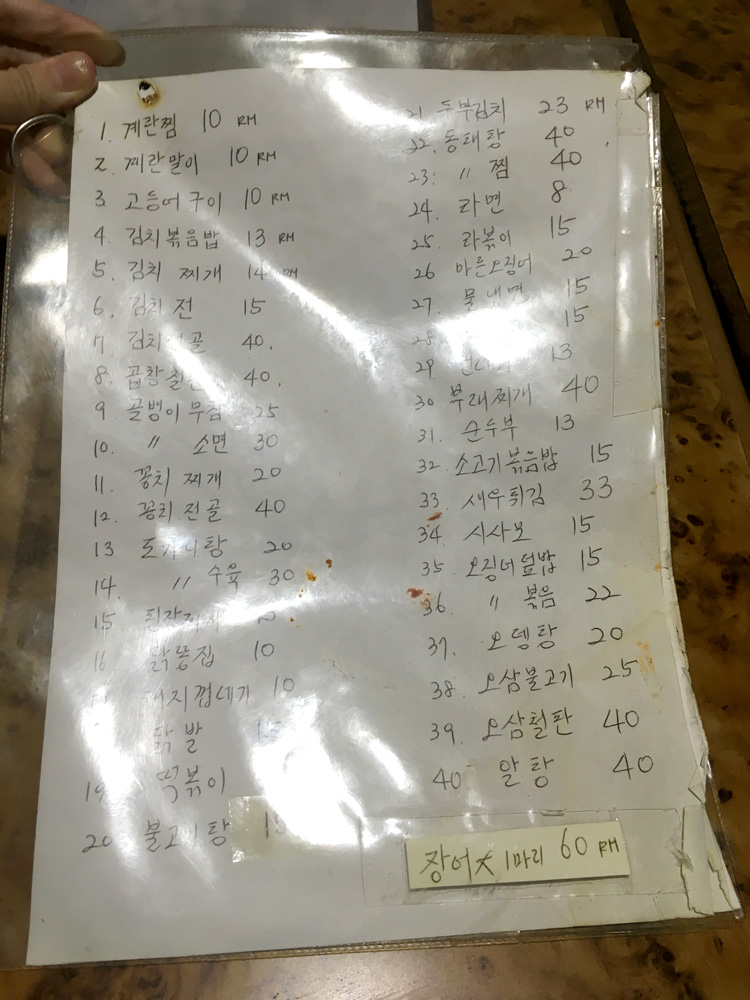 1. 계란찜 10 RM
2. 계란말이 10 RM
3. 고등어구이 10 RM
4. 김치볶음밥 13 RM
5. 김치 찌개 14 RM
6. 김치 전 15
7. 40.
8. 40.
9 골뱅이 무침 25
10. 〃 소면 30
11. 꽁치 찌개 20
12. 꽁치 전골 40
13 20
14. 〃 수육 30
15
16 닭똥집 10
10
닭 발 15
19 떡볶이
20 불고기탕 15
21. 두부김치 23 RM
22. 동태탕 40
23. 〃 찜 40
24. 라면 8
25. 라볶이 15
26 마른오징어 20
27. 물냉면 15
28 15
29 13
30 부대찌개 40
31. 순두부 13
32. 소고기볶음밥 15
33. 새우튀김 33
34. 시사모 15
35 오징어덮밥 15
36. 〃 볶음 22
37. 오뎅탕 20
38. 오삼불고기 25
39. 오삼철판 40
40 알탕 40
장어大 1마리 60 RM